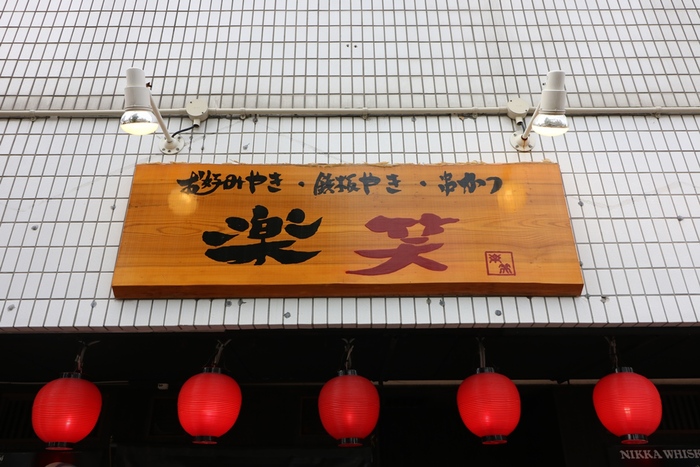 お好み焼やき・鉄板やき・串かつ
楽笑
楽笑
NIKKA WHISK